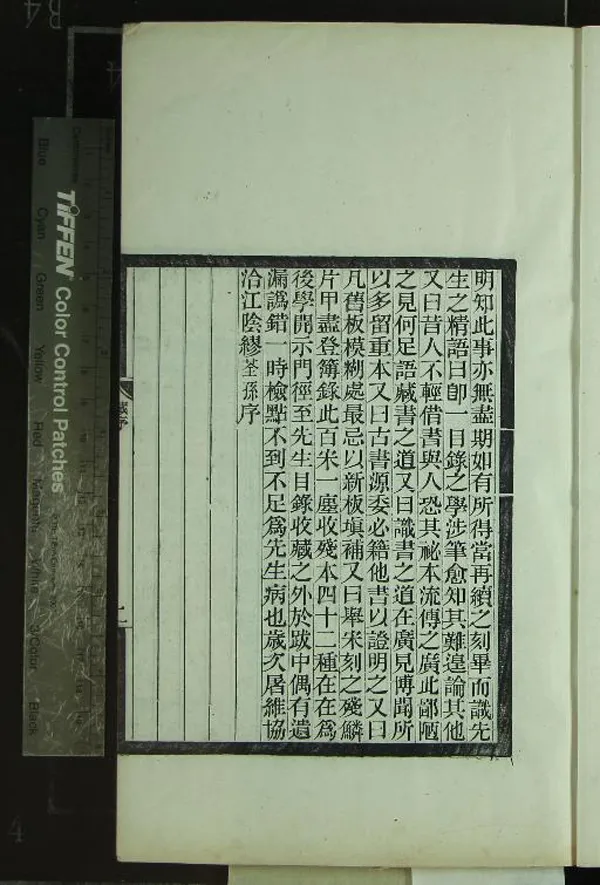 明知此事亦無盡期如有所得當再續之刻畢而識先
生之精語曰卽一目錄之學涉筆愈知其難遑論其他
又曰昔人不輕借書與人恐其祕本流傳之廣此鄙陋
之見何足語藏書之道又曰識書之道在廣見博聞所
以多留重本又曰古書源委必籍他書以證明之又曰
凡舊板模糊處最忌以新板塡補又曰舉宋刻之殘鱗
片甲盡登簿錄此百宋一廛收殘本四十二種在在爲
後學開示門徑至先生目錄收藏之外於跋中偶有遺
漏譌錯一時檢點不到不足爲先生病也歲次屠維協
洽江陰繆荃孫序
藏序
二
TIFFEN Color Control Patches
Blue Cyan Green Yellow Red Magenta White 3/Color Black